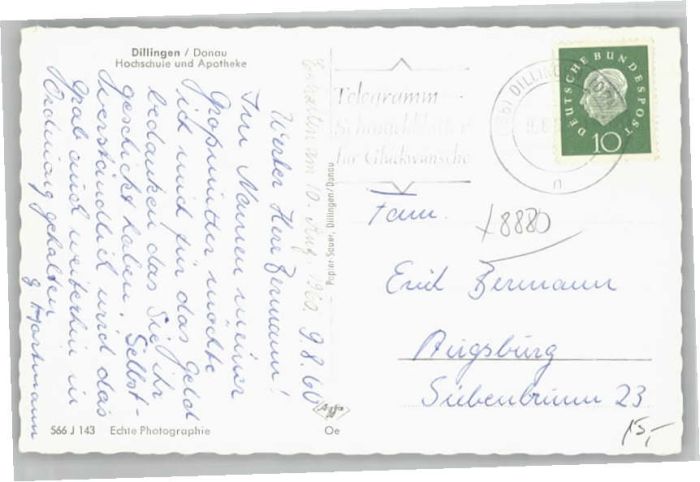 Dillingen / Donau
Hochschule und Apotheke
9.8.60
Werter Herr Bermann!
Im Namen meiner
Großmutter möchte
ich mich für das Geld
bedanken das Sie ihr
geschickt haben. Selbst-
verständlich wird das
Grab auch weiterhin in
Ordnung gehalten
G. Hartmann
Erhalten am 10. Aug. 1960.
Papier-Sauer, Dillingen/Donau
Telegramm
Schmuckblätter
für Glückwünsche
DILLINGEN
DEUTSCHE BUNDESPOST
10
Fam.
8880
Emil Bermann
Augsburg
Siebenbrunn 23
15,-
S66 J 143 Echte Photographie
Agfa
Oe